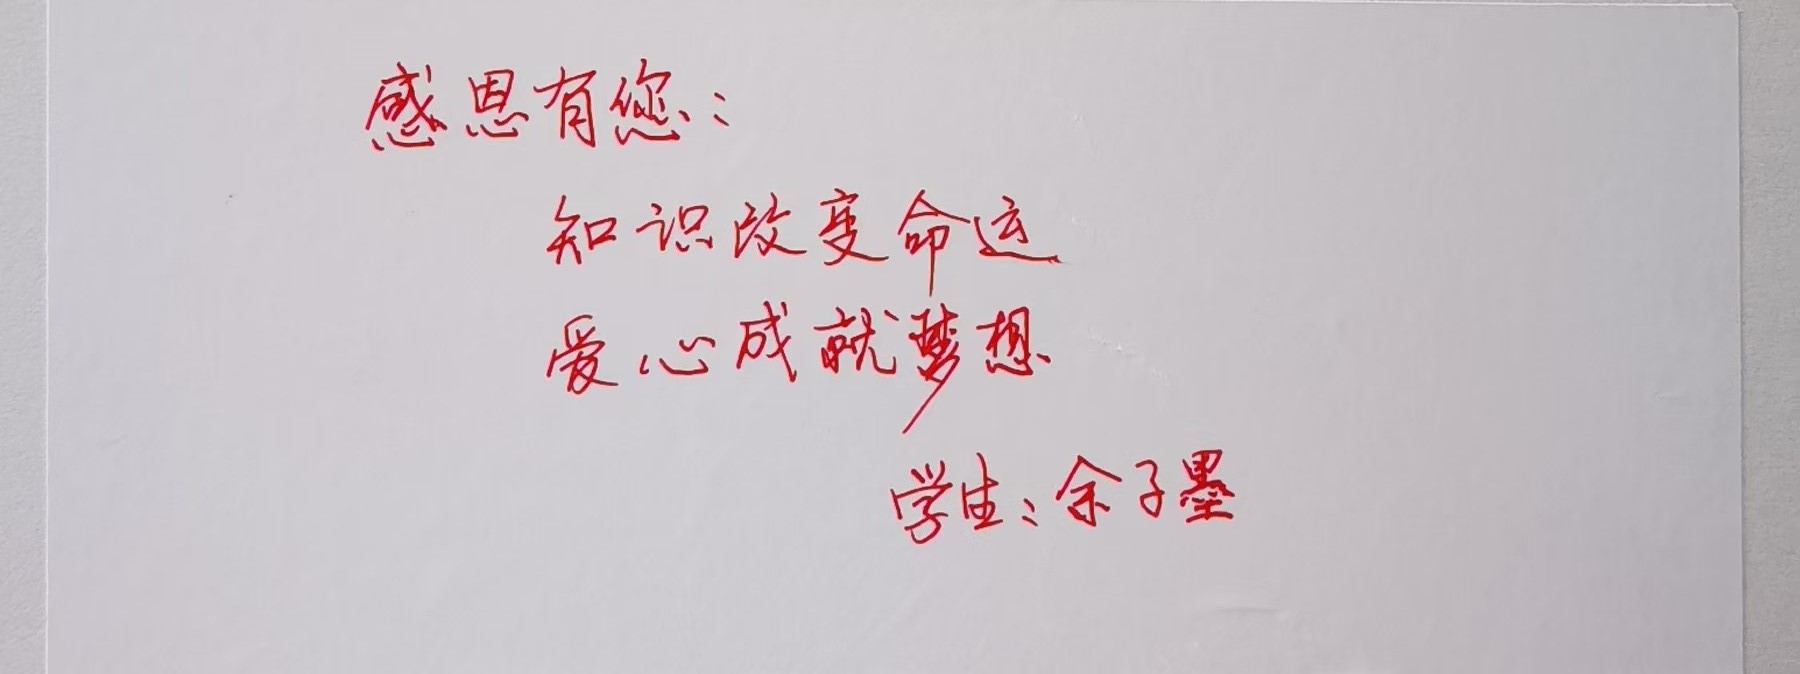 感恩有您：
知识改变命运
爱心成就梦想
学生：余子墨